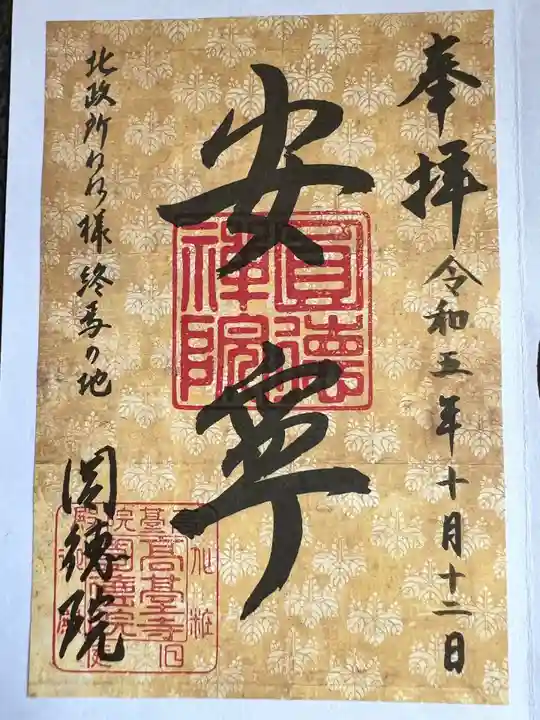 奉拝 令和五年十月十二日
安寧
圓德禅院
北政所ねね様終焉の地
圓徳院
高䑓寺